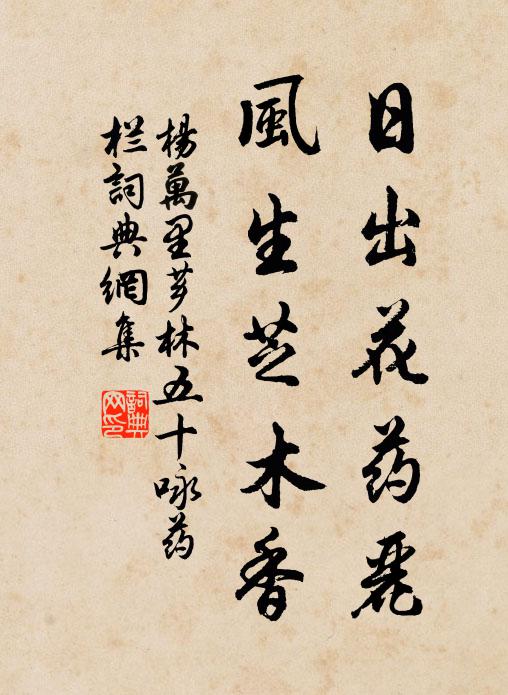 日出花药麗
風生芝木香
楊萬里芗林五十咏药
栏詞典網集
詞典网印